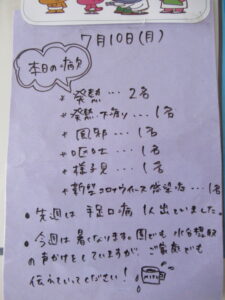 7月10日(月)
本日の病欠
* 発熱 … 2名
* 発熱 下痢 … 1名
* 風邪 … 1名
* 嘔吐 … 1名
* 様子見 … 1名
* 新型コロナウイルス感染症 … 1名
• 先週は 手足口病 1人出ていました。
• 今週は暑くなります。園でも 水分摂取
の声かけをしていますが、ご家庭でも
伝えていってください!